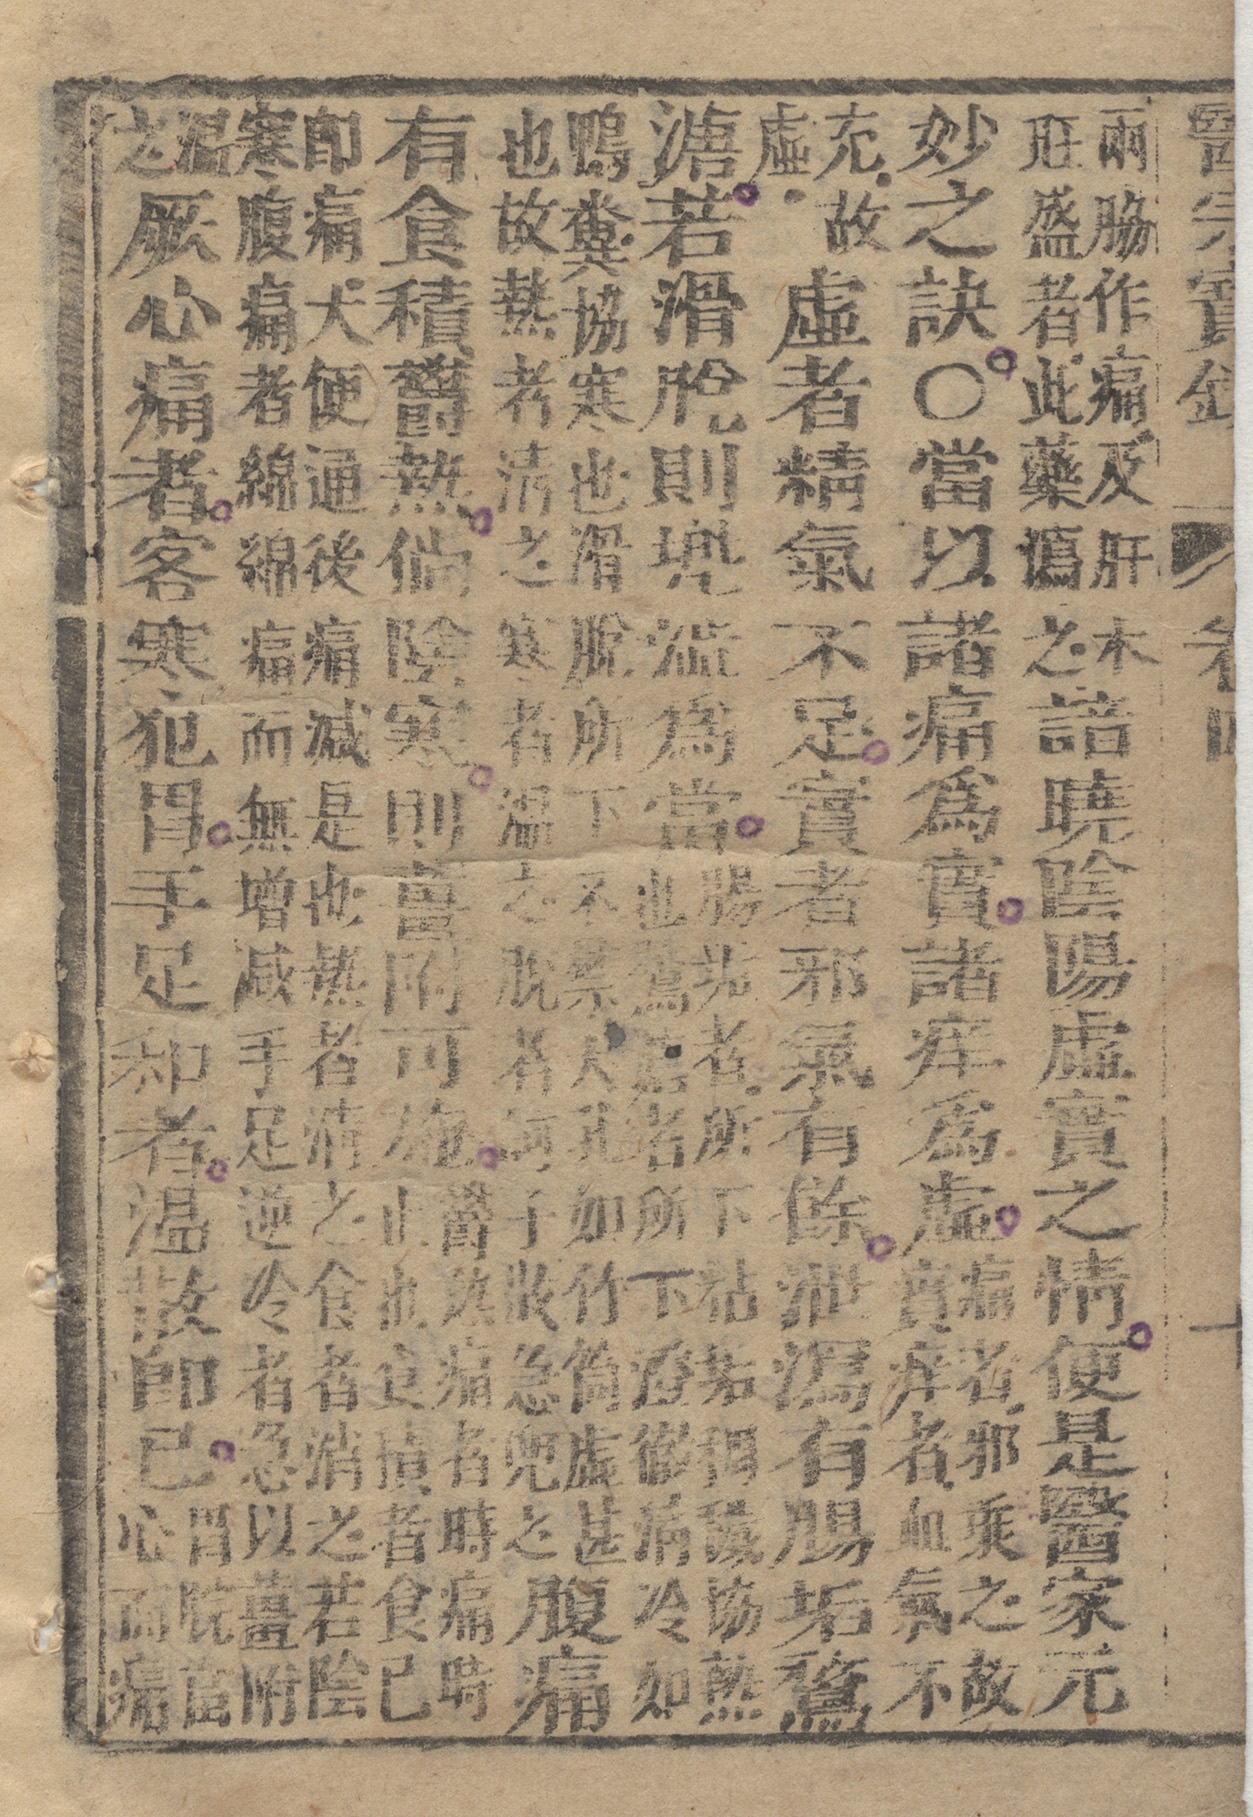 醫宗寶鏡 卷四 一
兩脇作痛及肝木
旺盛者此藥瀉之
諳曉陰陽虛實之情便是醫家元
妙之訣〇當以諸痛爲實諸痒爲虛
痛者邪乘之故
實痒者血氣不
充故
虛
虛者精氣不足實者邪氣有餘泄瀉有腸垢鶩
溏若滑脫則兜澁爲當
腸垢者所下粘垢稠穢協熱
也鶩溏者所下澄徹清冷如
鴨糞協寒也滑脫所下不禁大孔如竹筒虛甚
也故熱者清之寒者溫之脫者訶子收急兜之
腹痛
有食積鬱熱倘陰寒則薑附可施
鬱熱痛者時痛時
止也食積者食已
即痛大便通後痛减是也熱者清之食者消之若陰
寒腹痛者綿綿痛而無增减手足逆冷者急以薑附
溫
之
厥心痛者客寒犯胃手足和者溫散即已
胃脘當
心而痛